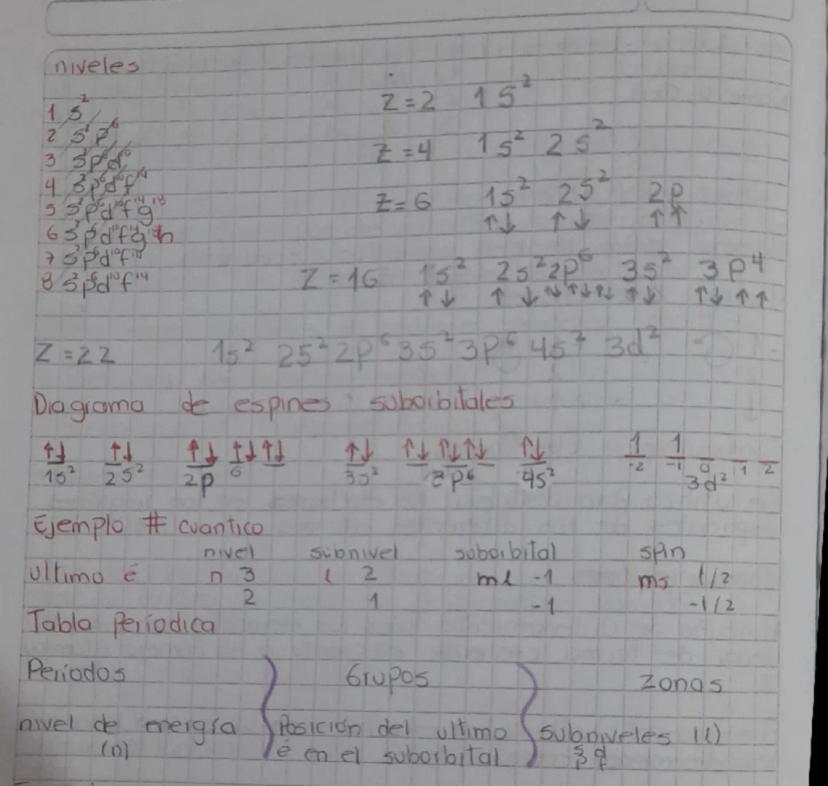 niveles
1 s²
2 s²p⁶
3 s²p⁶d¹⁰
4 s²p⁶d¹⁰f¹⁴
5 s²p⁶d¹⁰f¹⁴g¹⁸
6 s²p⁶d¹⁰f¹⁴g¹⁸h
7 s²p⁶d¹⁰f¹⁴
8 s²p⁶d¹⁰f¹⁴
Z=2 1s²
Z=4 1s² 2s²
Z=6 1s² 2s² 2p
↑↓ ↑↓ ↑↑
Z=16 1s² 2s² 2p⁶ 3s² 3p⁴
↑↓ ↑↓ ↑↓↑↓↑↓ ↑↓ ↑↓ ↑↑
Z=22 1s² 2s² 2p⁶ 3s² 3p⁶ 4s² 3d²
Diagrama de espines suborbitales
↑↓ ↑↓ ↑↓ ↑↓ ↑↓ ↑↓ ↑↓ ↑↓ ↑↓ ↑↓ 1 1
1s² 2s² 2p⁶ 3s² 3p⁶ 4s² -2 -1 0 1 2
3d²
Ejemplo # cuantico
nivel subnivel suborbital spin
ultimo é n 3 l 2 ml -1 ms 1/2
2 1 -1 -1/2
Tabla Periodica
Periodos Grupos Zonas
nivel de energía Posición del ultimo subniveles (l)
(n) é en el suborbital s d
p f